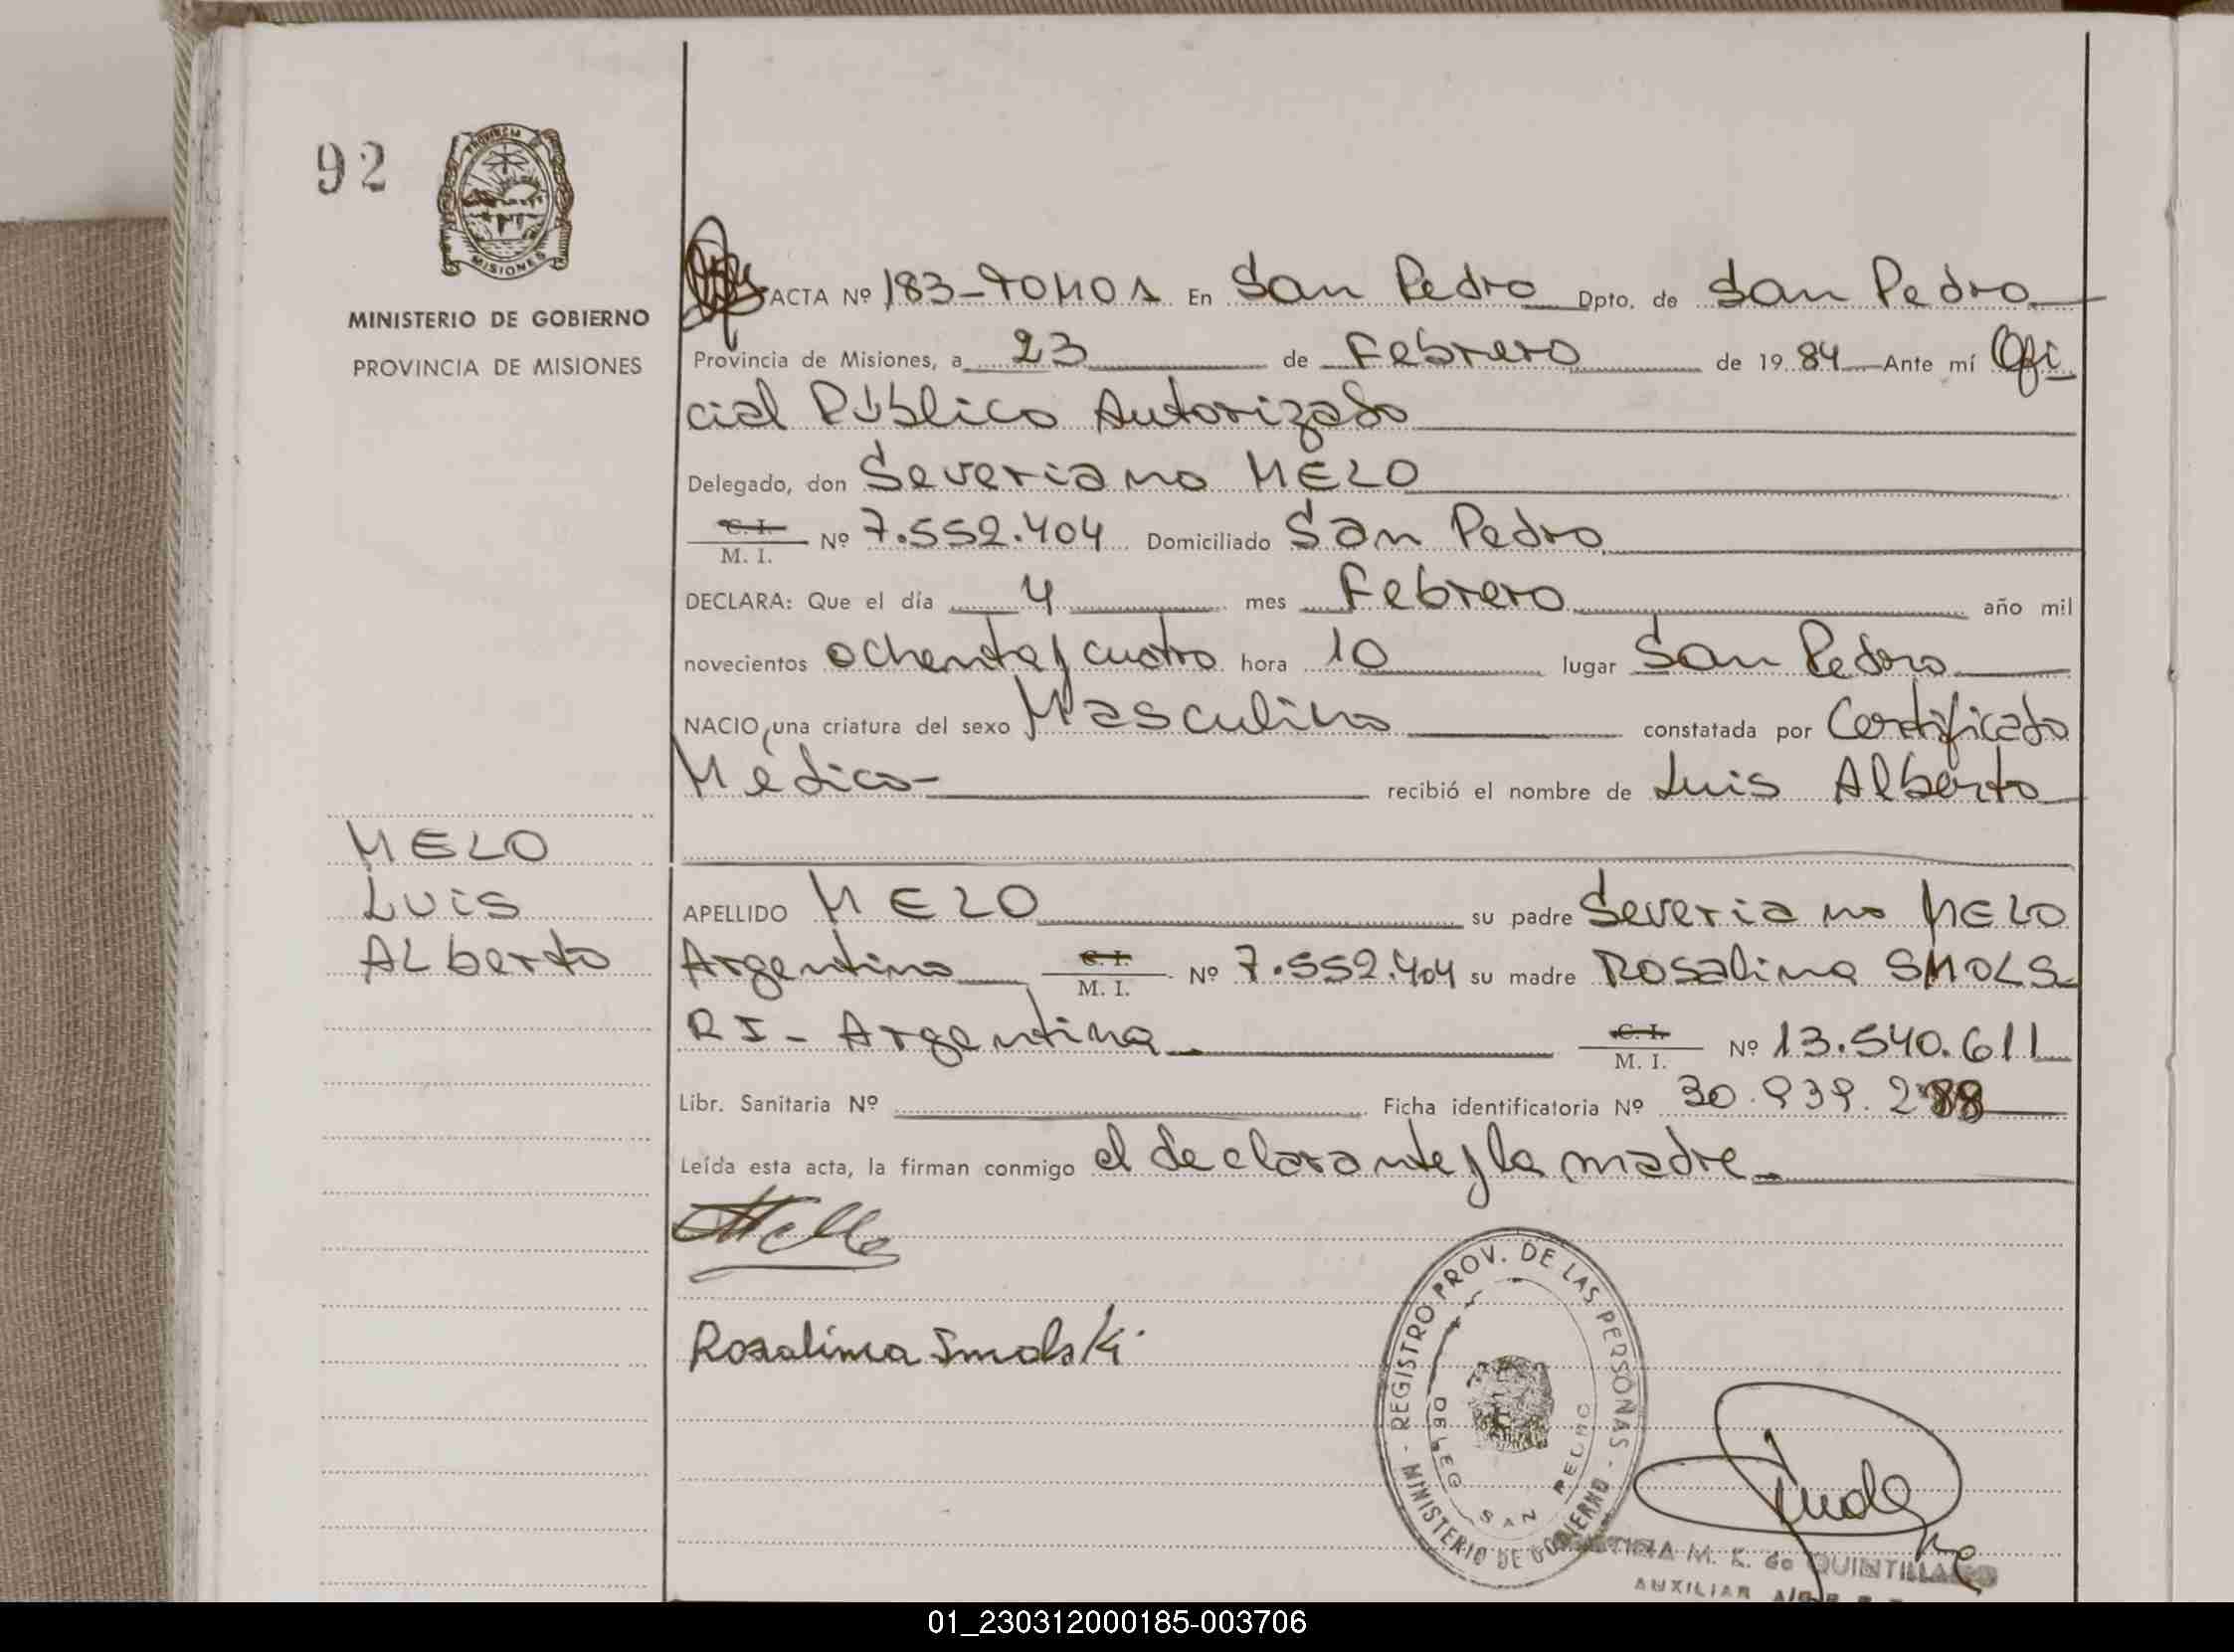 92
PROVINCIA
MISIONES
MINISTERIO DE GOBIERNO
PROVINCIA DE MISIONES
ACTA Nº 183-TOMO 1 En San Pedro Dpto. de San Pedro
Provincia de Misiones, a 23 de Febrero de 1984 Ante mí Ofi
cial Público Autorizado
Delegado, don Severiano MELO
C. I.
M. I. Nº 7.552.404 Domiciliado San Pedro
DECLARA: Que el día 4 mes Febrero año mil
novecientos ochenta y cuatro hora 10 lugar San Pedro
NACIO, una criatura del sexo Masculino constatada por Certificado
Médico- recibió el nombre de Luis Alberto
MELO
Luis
ALberto
APELLIDO MELO su padre Severiano MELO
Argentino C. I.
M. I. Nº 7.552.404 su madre Rosalina SMOLS
RI- Argentina C. I.
M. I. Nº 13.540.611
Libr. Sanitaria Nº Ficha identificatoria Nº 30.939.288
Leída esta acta, la firman conmigo el declarante y la madre
Rosalina Smolski
REGISTRO PROV. DE LAS PERSONAS - MINISTERIO DE GOBIERNO -
DELEG SAN PEDRO
M. K. de QUINTILLANO
AUXILIAR
01_230312000185-003706